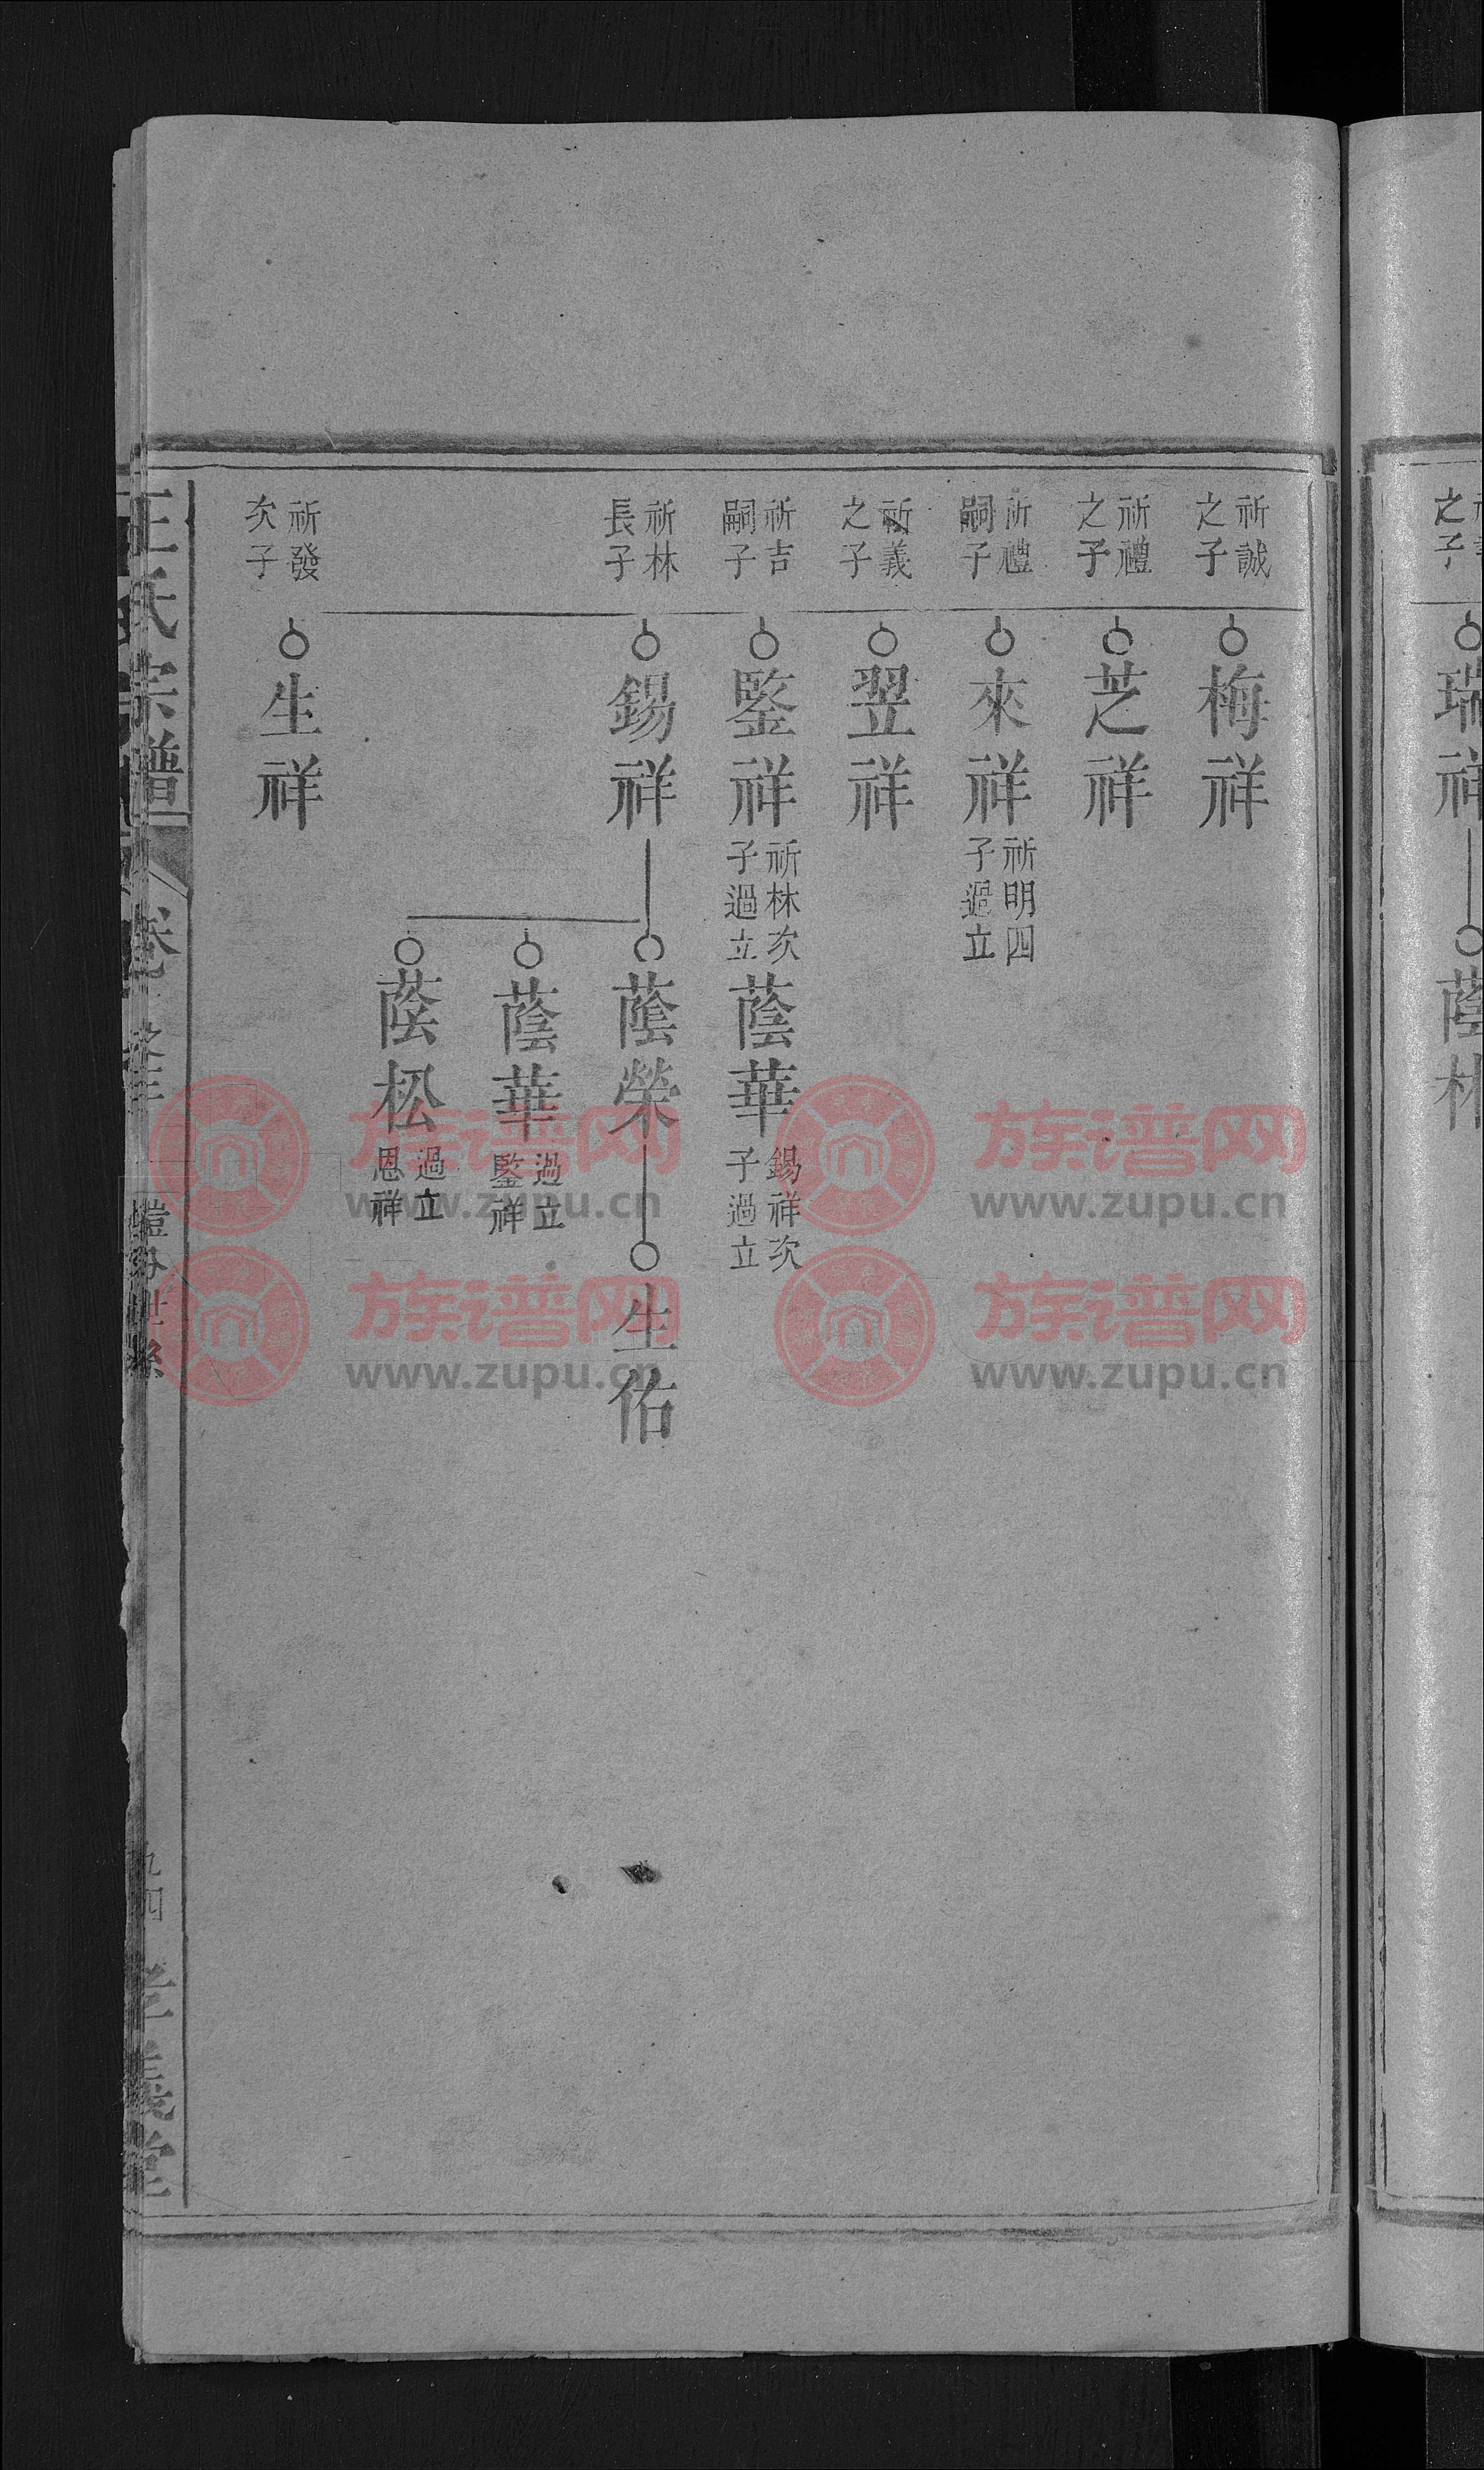 祈誠
之子
梅祥
祈禮
之子
芝祥
祈禮
嗣子
來祥
祈明四
子過立
祈義
之子
翌祥
祈吉
嗣子
鋻祥
祈林次
子過立
蔭華
錫祥次
子過立
祈林
長子
錫祥
蔭榮
生佑
蔭華
過立
鋻祥
蔭松
過立
恩祥
祈發
次子
生祥
氏宗譜
卷
世系
四
義堂
之子
瑞祥
蔭林
族谱网
www.zupu.cn
族谱网
www.zupu.cn
族谱网
www.zupu.cn
族谱网
www.zupu.cn